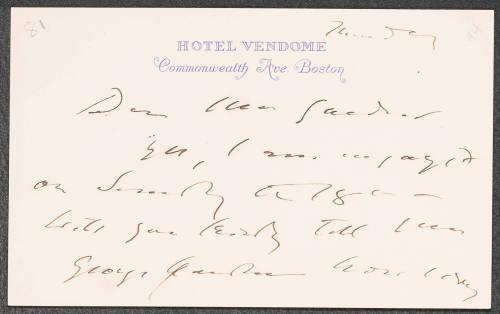 81
Thursday
HOTEL VENDOME
Commonwealth Ave. Boston
Dear Mrs Gardner
Yes, I am engaged
on Sunday
Will you kindly tell Mrs
George how very